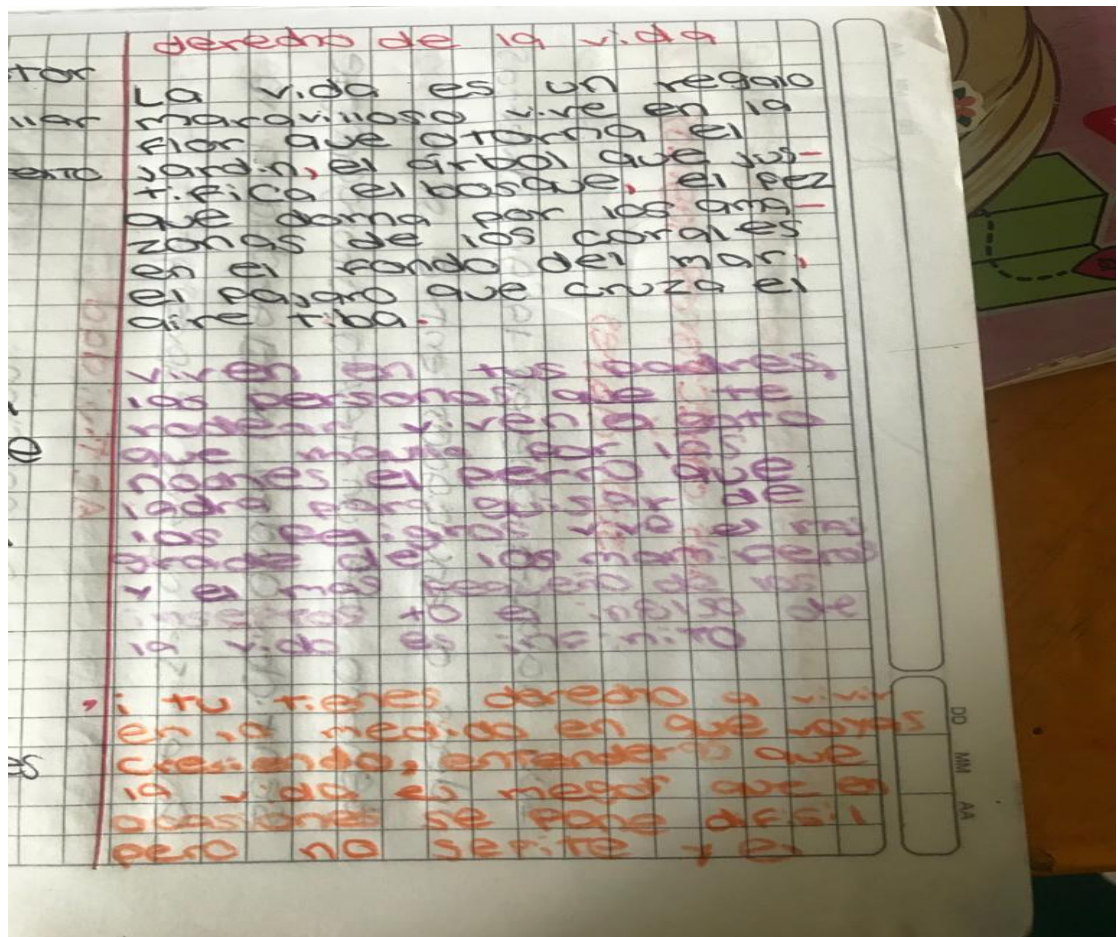 derecho de la vida
La vida es un regalo
maravilloso vive en la
flor que otorna el
jardin, el árbol que jus-
tifica el bosque, el pez
que doma por las ama-
zonas de los corales
en el fondo del mar,
el pajaro que cruza el
aire tiba.
viven en tus padres,
las personas que te
rodean viven o gato
que maulla por las
noches el perro que
ladra para quisar de
los peligros vive el
grande de los
y el mas pequeño de los
insectos to en
la vida es infinito
i tu tienes derecho a vivir
en la medida en que vayas
cresiendo, entenderas que
la vida es megor que en
ocasiones se pone dificil
pero no serite y es
tor
llar
ento
es
DD MM AA